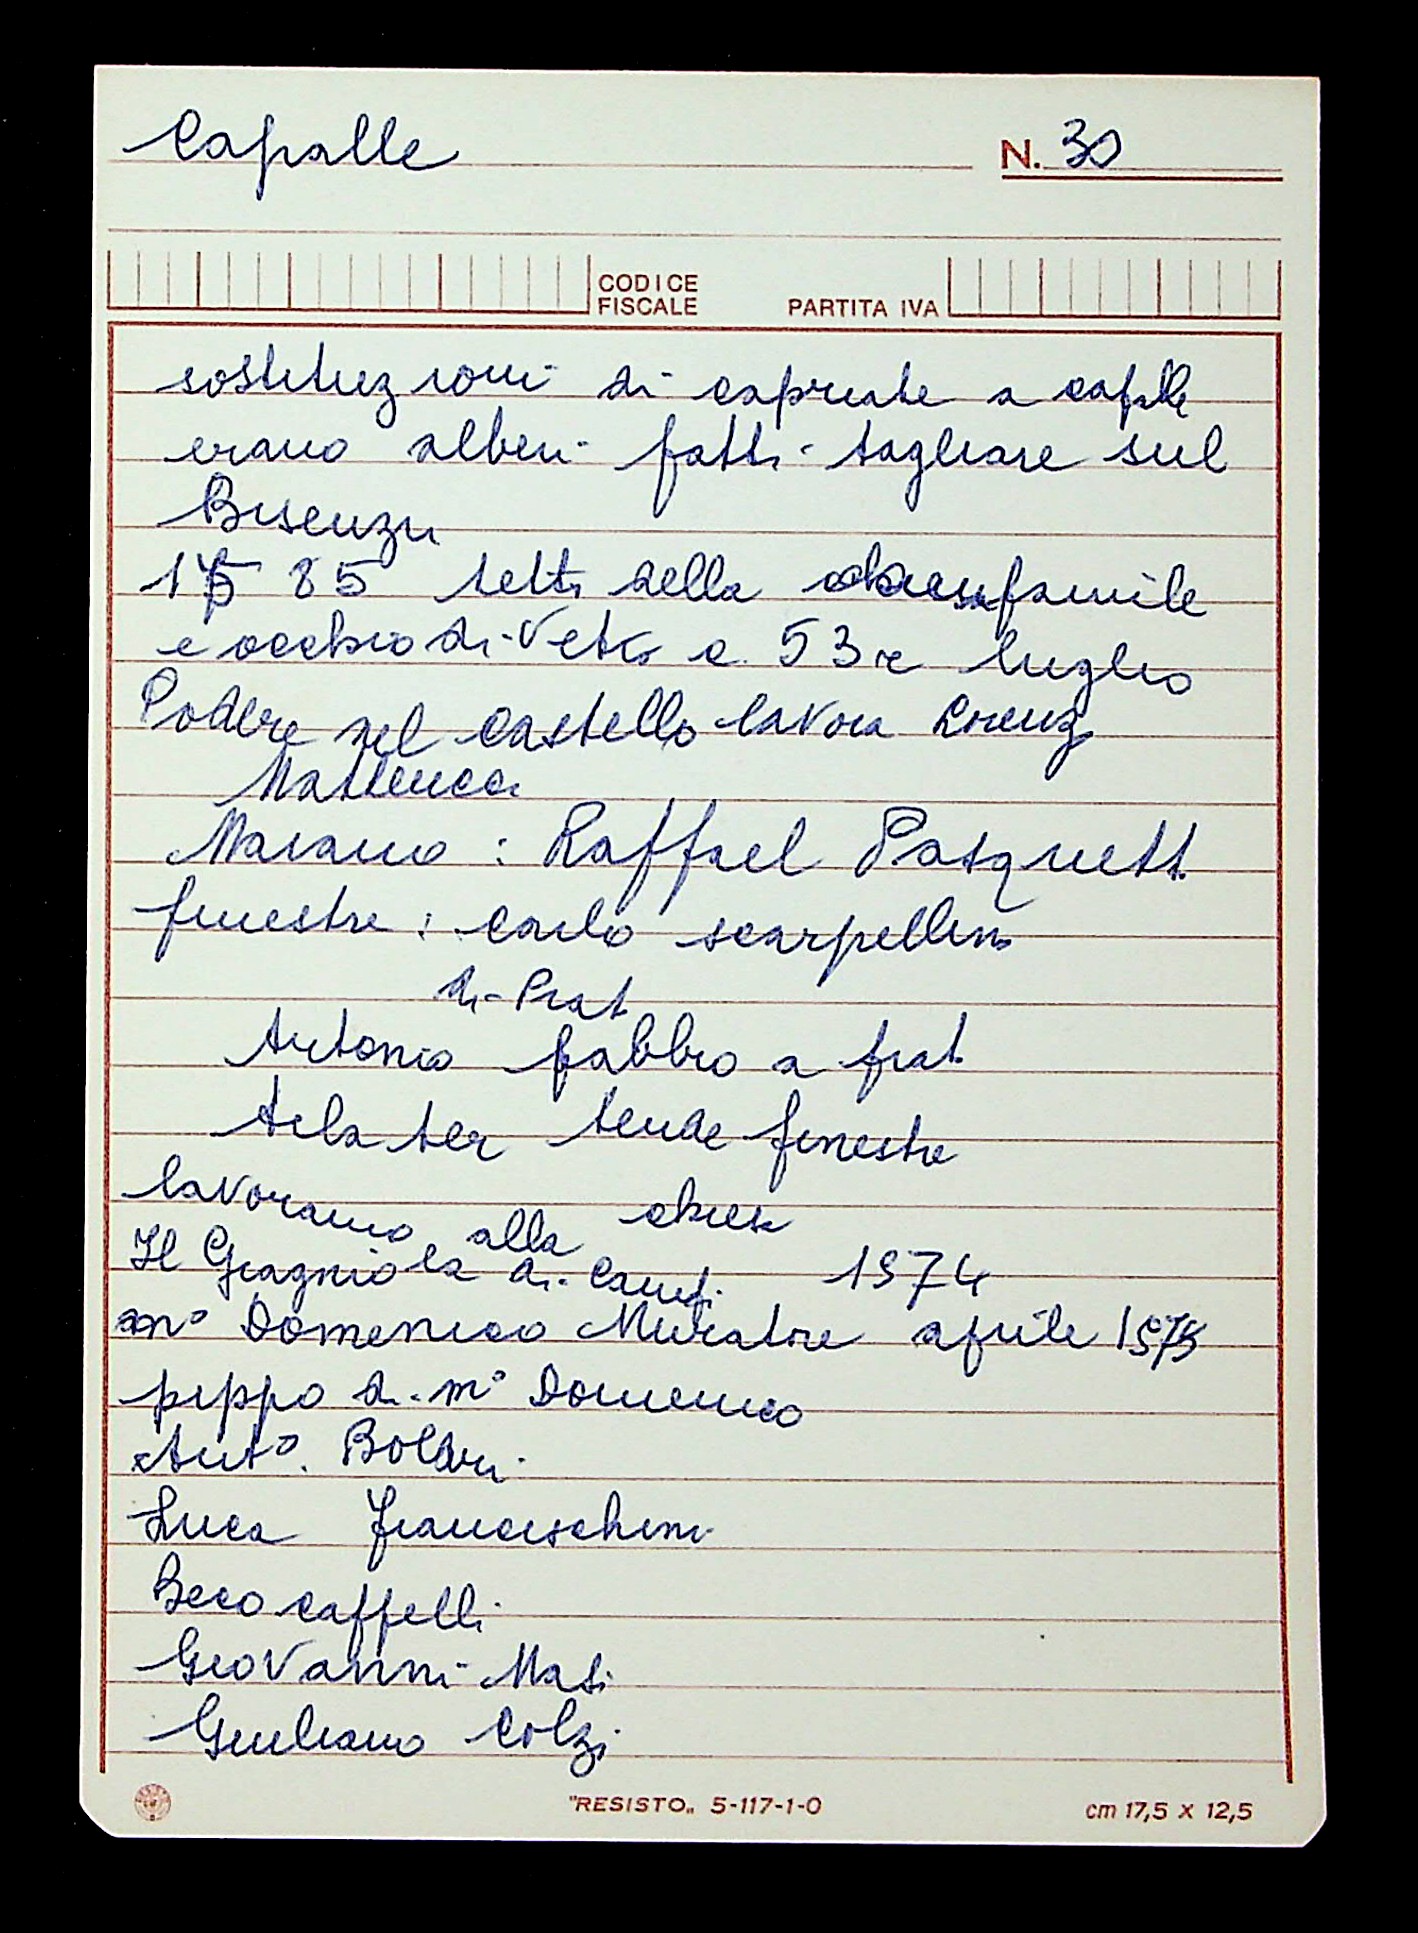 Capalle N. 30
CODICE FISCALE PARTITA IVA
sostituzioni di capriate a capalle
erano alberi fatti tagliare sul
Bisenzio
85 tetti della famile
e occhio di Vetro c. 53 r luglio
Podere nel castello lavora Lorenz
Matteucci
Marano : Raffael Pasquett.
finestre : Carlo scarpellino
di Prat.
Antonio fabbro a prat.
tela ter tende finestre
lavorano alla chies
Il Gragniola di Campi 1574
m° Domenico Muratore aprile 1575
pippo di m° Domenico
Ant°. Boldri
Luca franceschini
Beco caffelli
Giovanni Masi
Giuliano Colzi
"RESISTO„ 5-117-1-0 cm 17,5 x 12,5